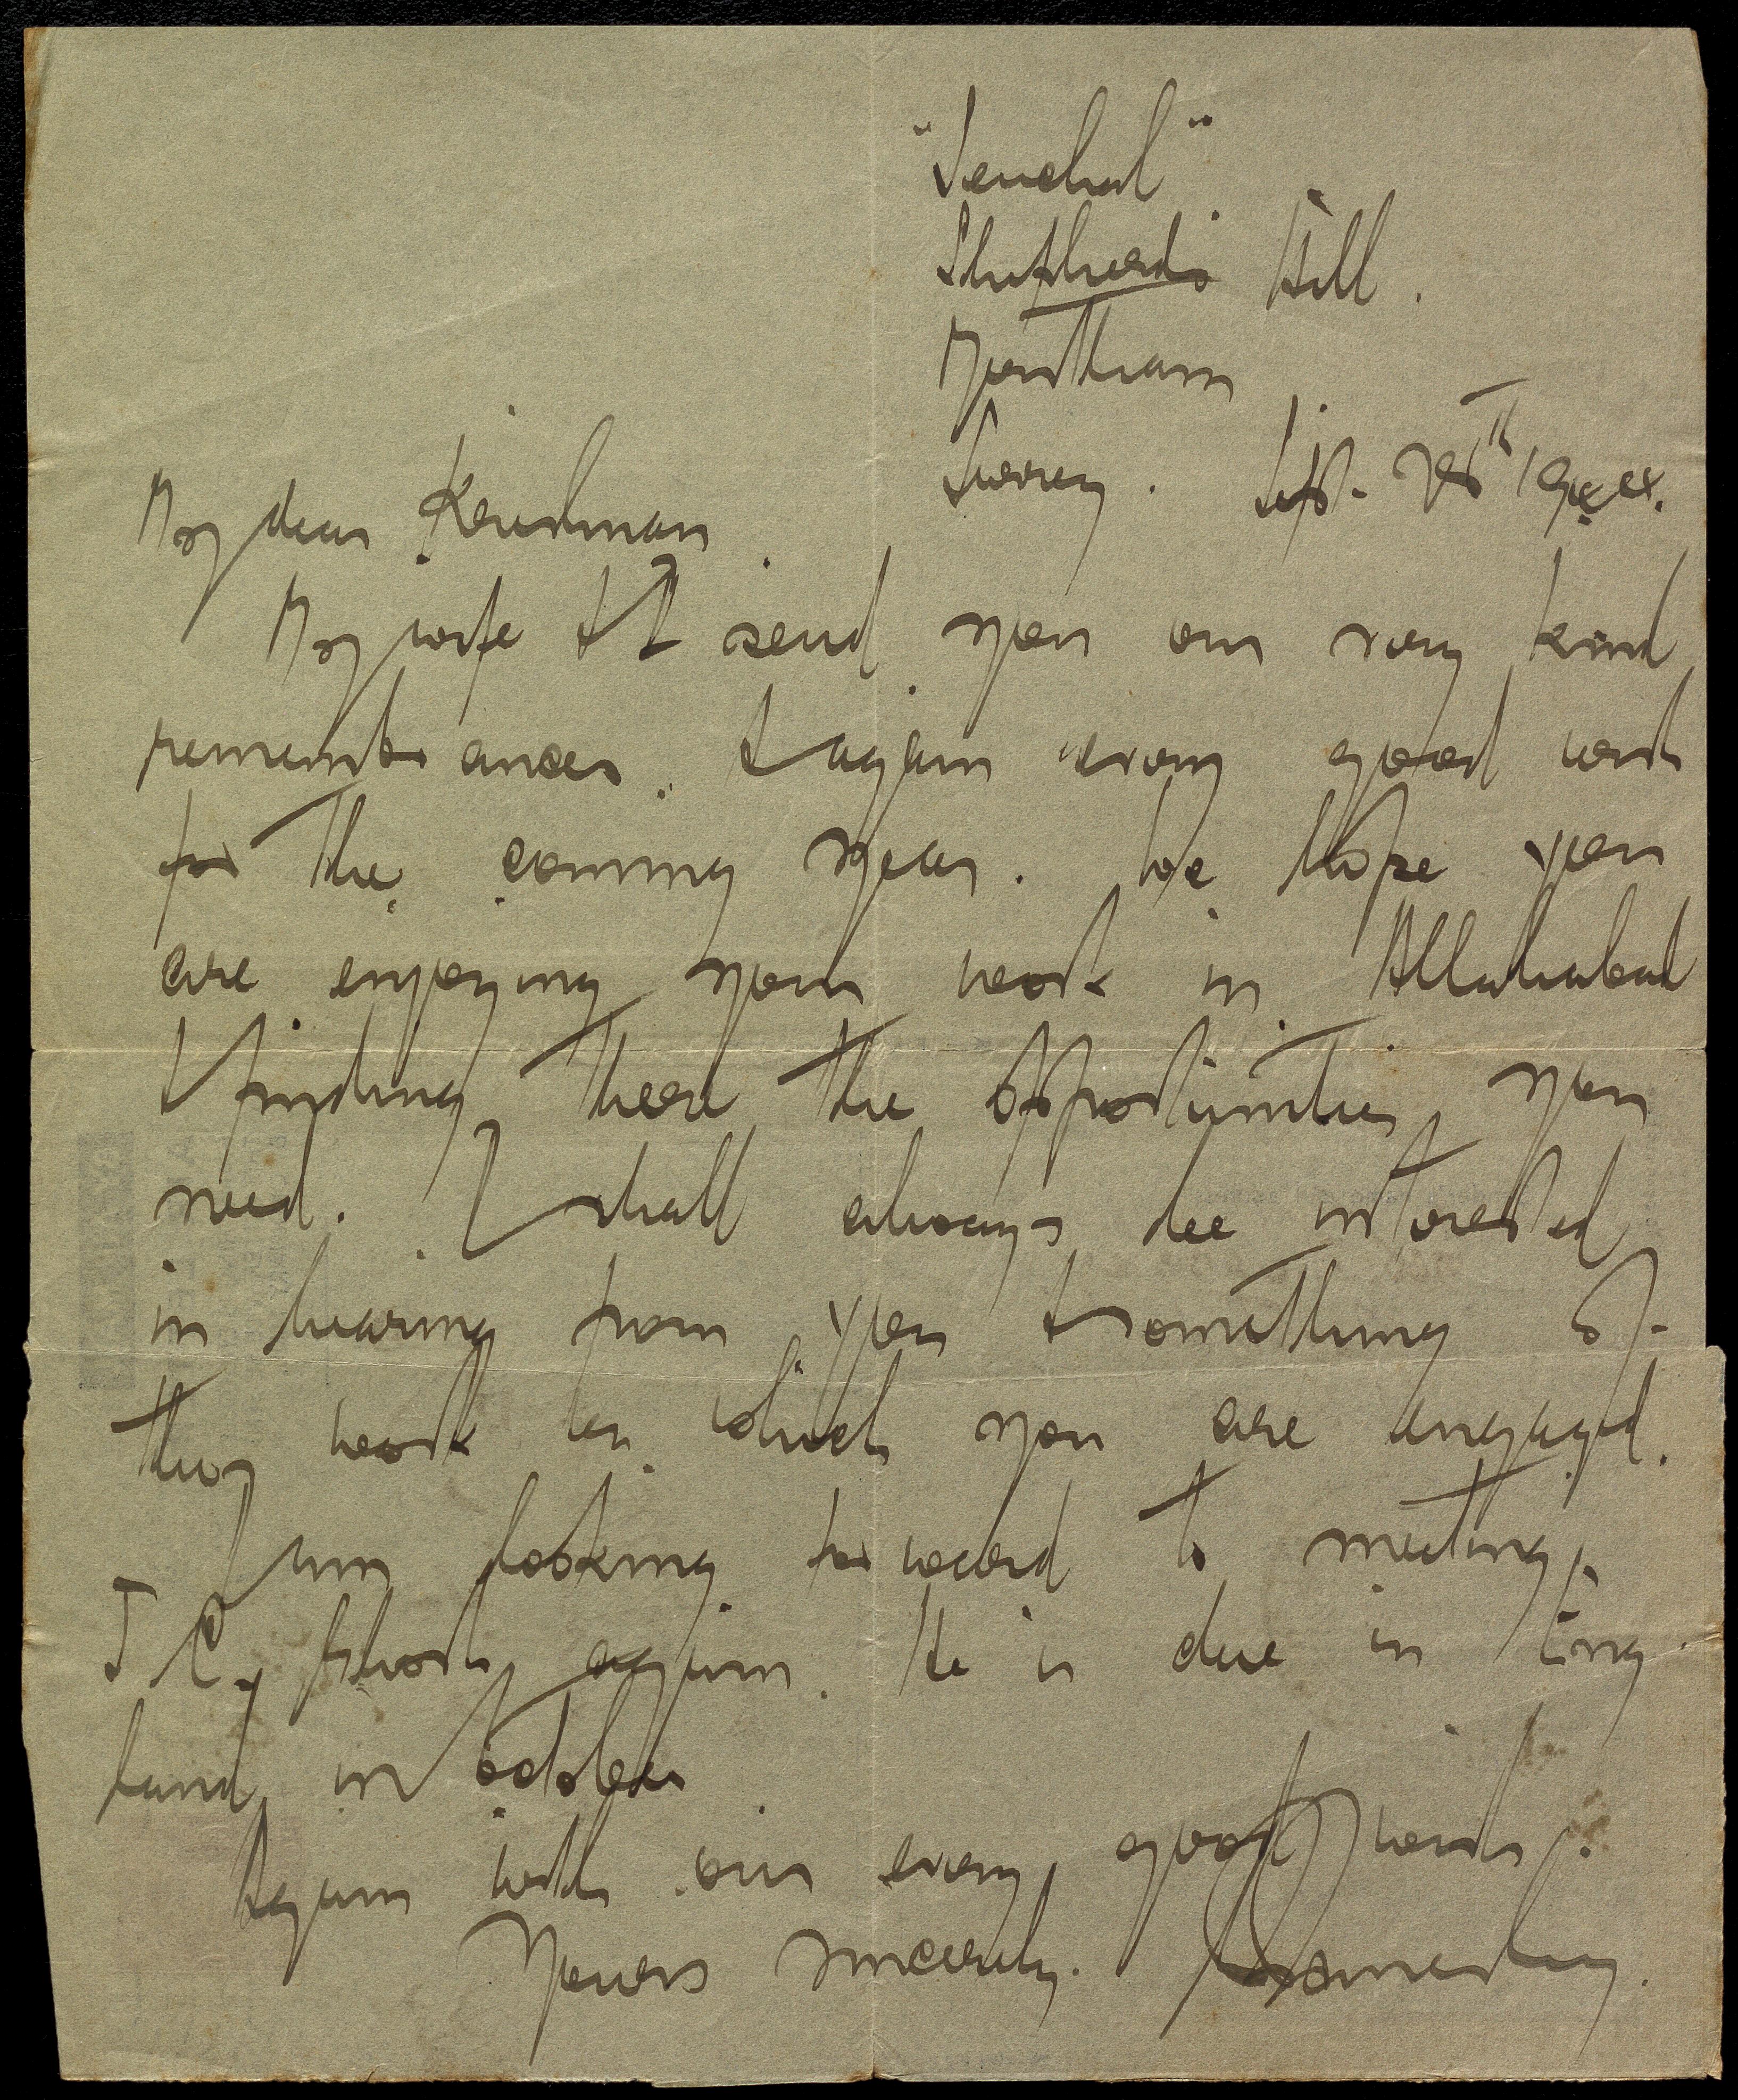 "Senchal"
Shepherd's Hill.
Merstham
Surrey. Sept. 25th
My dear Krishnan.
My wife & I send you our very kind
remembrances. & again every good wish
for the coming year. We hope you
are enjoying your work in Allahabad
& finding there the opportunities you
need. I shall always be interested
in hearing from you & something of
the work in which you are engaged.
I am looking forward to meeting
again. He is due in Eng-
land in October
Again with our every good wish.
Yours sincerely.